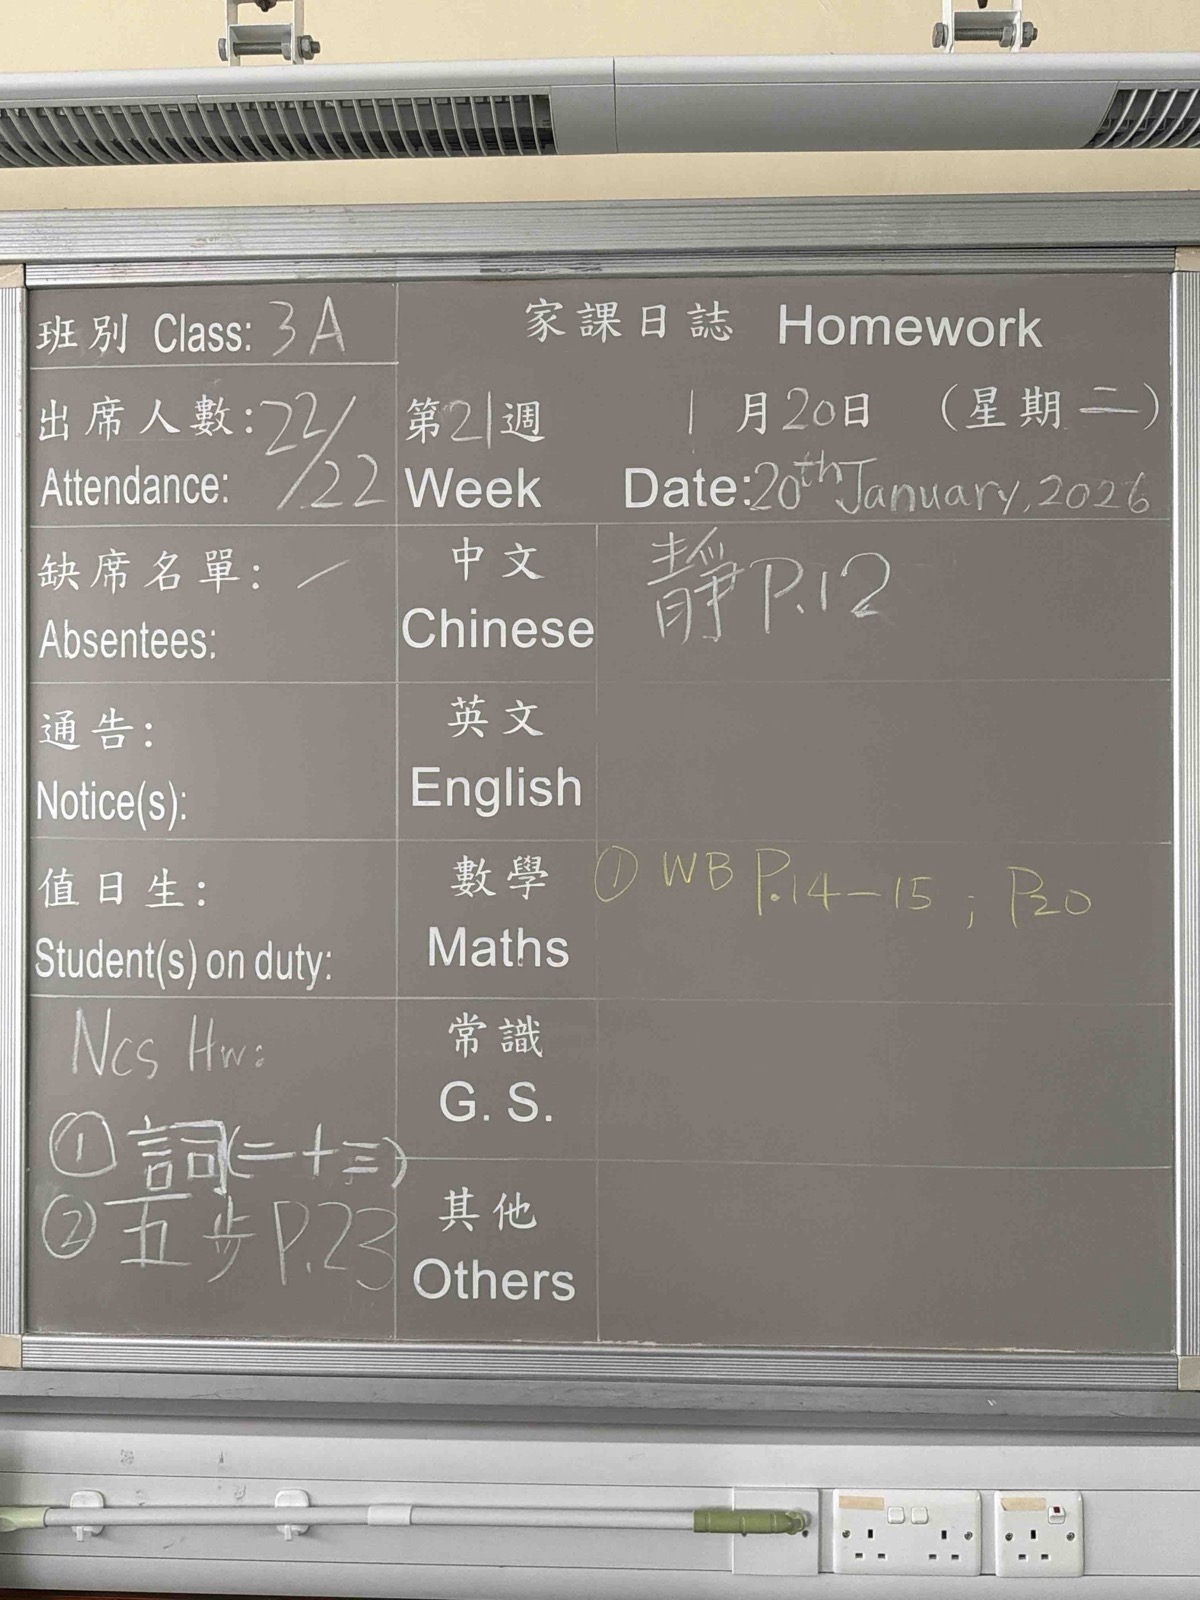 班別 Class: 3A
家課日誌 Homework
出席人數: 22/22
Attendance:
第21週
Week
1月20日 (星期二)
Date: 20th January, 2026
缺席名單: /
Absentees:
中文
Chinese
靜 P.12
通告:
Notice(s):
英文
English
值日生:
Student(s) on duty:
數學
Maths
① WB P.14-15 ; P20
Ncs Hw:
① 詞(二十三)
② 五步 P.23
常識
G. S.
其他
Others